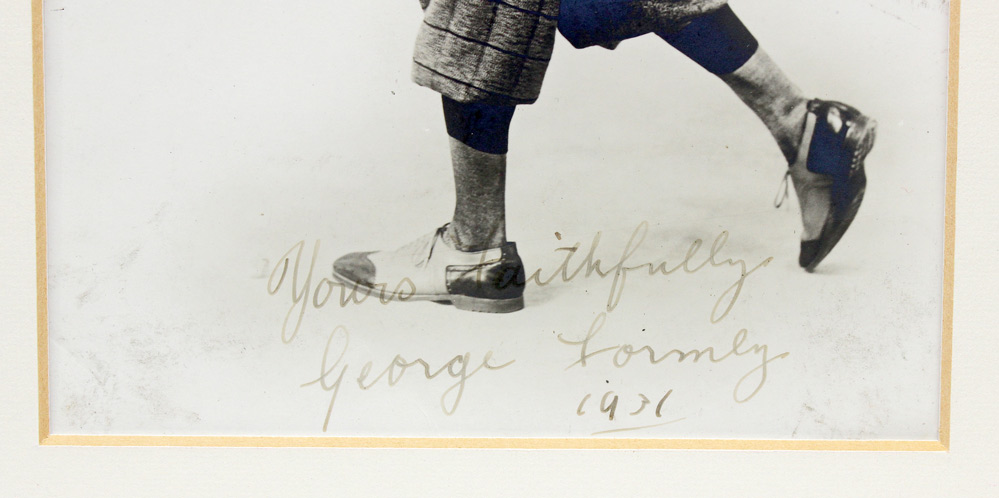 Yours faithfully
George Formby
1931